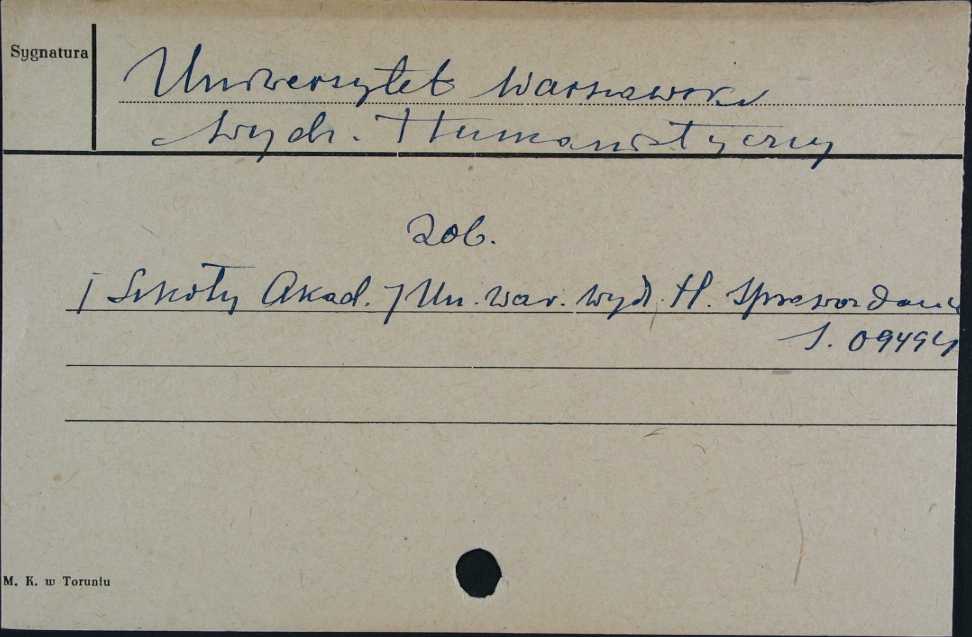 Sygnatura
Uniwersytet Warszawski
Wydz. Humanistyczny
Zob.
/ Szkoły Akad. / Un. War. Wyd. H. Sprawozdanie
S. 09494
M. K. w Toruniu